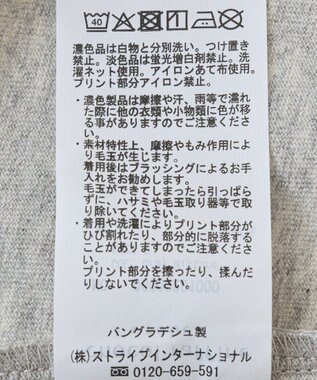 40
濃色品は白物と分別洗い。つけ置き
禁止。淡色品は蛍光増白剤禁止。洗
濯ネット使用。アイロンあて布使用。
プリント部分アイロン禁止。
・濃色製品は摩擦や汗、雨等で濡れ
た際に他の衣類や小物類に色が移
る事がありますのでご注意くださ
い。
・素材特性上、摩擦やもみ作用によ
り毛玉が生じます。
着用後はブラッシングによるお手
入れをお勧めします。
毛玉ができてしまったら引っぱら
ずに、ハサミや毛玉取り器等で取
り除いてください。
・着用や洗濯によりプリント部分が
ひび割れたり、部分的に脱落する
ことがありますのでご注意くださ
い。
プリント部分を擦ったり、揉んだ
りしないでください。
バングラデシュ製
(株)ストライプインターナショナル
0120-659-591